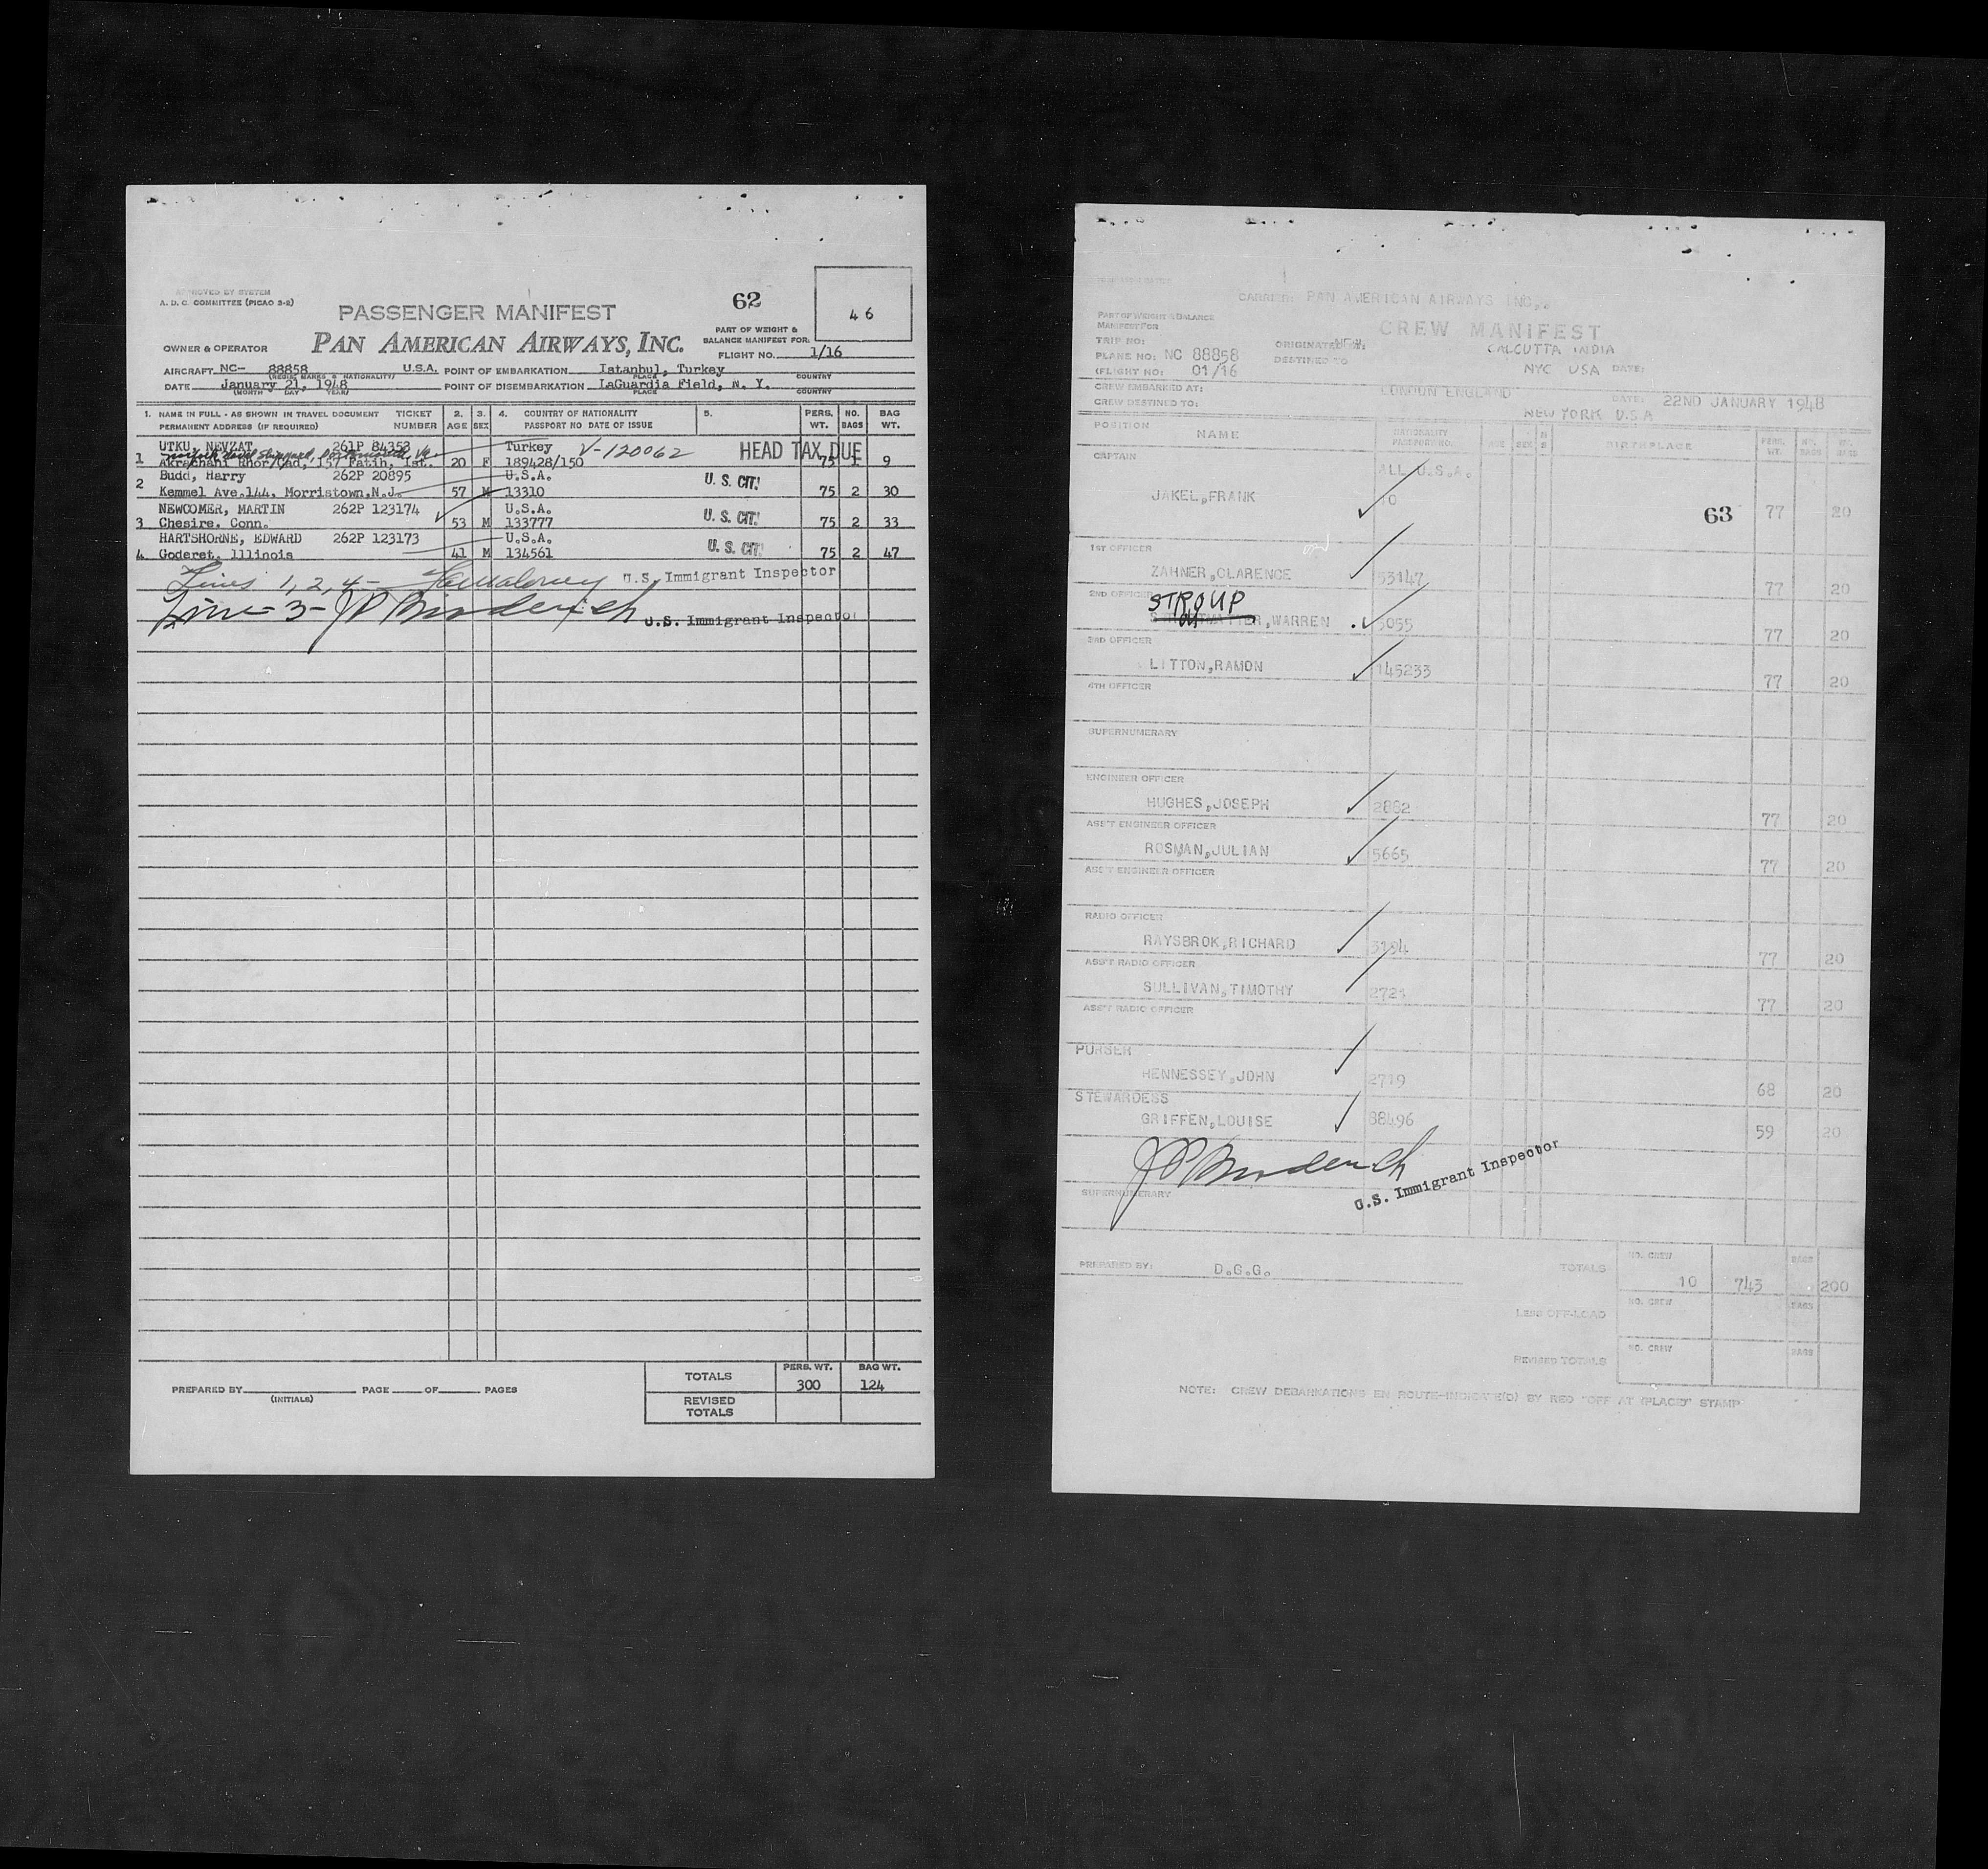 APPROVED BY SYSTEM
A. D. C. COMMITTEE (PICAO 3-2)
62
46
PASSENGER MANIFEST
PART OF WEIGHT &
BALANCE MANIFEST FOR:
OWNER & OPERATOR PAN AMERICAN AIRWAYS, INC.
FLIGHT NO. 1/16
AIRCRAFT NC- 88858 U.S.A. POINT OF EMBARKATION Istanbul, Turkey
(REGIS. MARKS & NATIONALITY) PLACE COUNTRY
DATE January 21, 1948 POINT OF DISEMBARKATION LaGuardia Field, N. Y.
(MONTH DAY YEAR) PLACE COUNTRY
1. NAME IN FULL - AS SHOWN IN TRAVEL DOCUMENT TICKET 2. 3. 4. COUNTRY OF NATIONALITY 5. PERS. NO. BAG
PERMANENT ADDRESS (IF REQUIRED) NUMBER AGE SEX PASSPORT NO DATE OF ISSUE WT. BAGS WT.
UTKU, NEVZAT 261P 84353 Turkey V-120062 HEAD TAX DUE
Portsmouth, Va.
1 157 Fatih, Ist. 20 F 189428/150 75 1 9
Budd, Harry 262P 20895 U.S.A. U. S. CIT.
2 Kemmel Ave.144. Morristown,N.J. 57 M 13310 75 2 30
NEWCOMER, MARTIN 262P 123174 U.S.A.
3 Chesire. Conn. 53 M 133777 U. S. CIT. 75 2 33
HARTSHORNE, EDWARD 262P 123173 U.S.A.
4 Goderet. Illinois 41 M 134561 U. S. CIT. 75 2 47
Lines 1, 2, 4 - U.S. Immigrant Inspector
Line - 3 - U.S. Immigrant Inspector
TOTALS PERS. WT. BAG WT.
300 124
PREPARED BY (INITIALS) PAGE OF PAGES
REVISED
TOTALS
CARRIER: PAN AMERICAN AIRWAYS INC.
PART OF WEIGHT & BALANCE
MANIFEST FOR
CREW MANIFEST
TRIP NO: ORIGINATED CALCUTTA INDIA
PLANE NO: NC 88858 DESTINED TO
(FLIGHT NO: 01/16 NYC USA DATE:
CREW EMBARKED AT: LONDON ENGLAND DATE: 22ND JANUARY 1948
CREW DESTINED TO: NEW YORK U.S.A
POSITION NAME NATIONALITY PASSPORT NO. AGE SEX BIRTHPLACE PERS. WT. NO. BAGS
CAPTAIN ALL U.S.A.
JAKEL,FRANK 63 77 20
1ST OFFICER
ZAHNER,CLARENCE 53147 77 20
2ND OFFICER
STROUP
WARREN 5055 77 20
3RD OFFICER
LITTON,RAMON 145233 77 20
4TH OFFICER
SUPERNUMERARY
ENGINEER OFFICER
HUGHES,JOSEPH 2882 77 20
ASS'T ENGINEER OFFICER
ROSMAN,JULIAN 5665 77 20
ASS'T ENGINEER OFFICER
RADIO OFFICER
RAYSBROK,RICHARD 3194 77 20
ASS'T RADIO OFFICER
SULLIVAN,TIMOTHY 2721 77 20
ASS'T RADIO OFFICER
PURSER
HENNESSEY,JOHN 2719 68 20
STEWARDESS
GRIFFEN,LOUISE 88496 59 20
U.S. Immigrant Inspector
SUPERNUMERARY
PREPARED BY: D.G.G. TOTALS NO. CREW 10 743 BAGS 200
LESS OFF-LOAD NO. CREW BAGS
REVISED TOTALS NO. CREW BAGS
NOTE: CREW DEBARKATIONS EN ROUTE-INDICATE(D) BY RED "OFF AT (PLACE)" STAMP